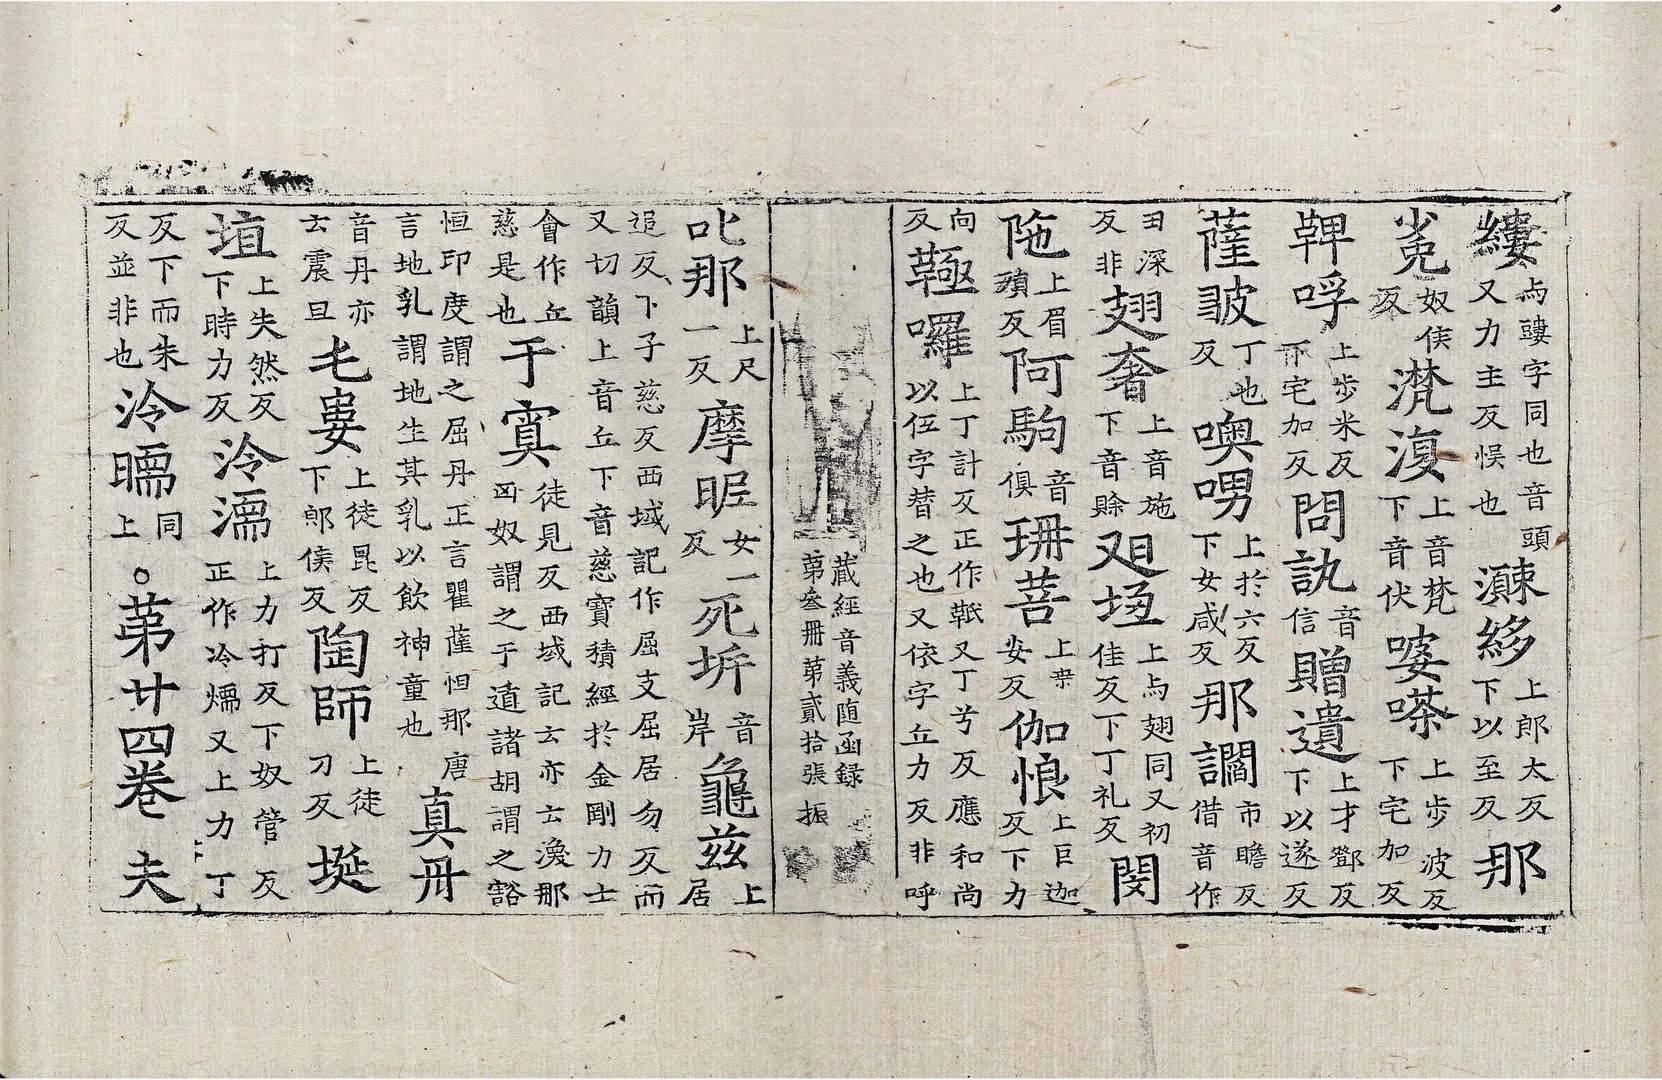 縷 与𩭤字同也音頭又力主反悮也 㵣 䋾 上郎太反下以至反 那
㲋 奴侯反 渀 澓 上音梵下音伏 婆 㗌 上歩波反下宅加反
鞞 呼 上歩米反下宅加反 問 訙 音信 贈 遺 上才鄧反下以遂反
薩 詖 丁也反 噢 㖠 上於六反下女咸反 那 讕 市瞻反借音作
𤰶深反非 翅 奢 上音施下音賒 𨑩 𡋯 上与翅同又初佳反下丁礼反 閔
陁 上眉殞反 阿 駒 音俱 珊 菩 上桒安反 伽 悢 上巨迦反下力
向反 鞮 囉 上丁計反正作䩚又丁兮反應和尚以伍字替之也又依字丘力反非呼
藏經音義随函録 第叄冊第貳拾張 振
叱 那 上尺一反 摩 昵 女一反 死 圻 音岸 龜 兹 上居
追反下子慈反西域記作屈支屈居勿反而又切韻上音丘下音慈寶積經於金剛力士
會作丘慈是也 于 窴 徒見反西域記云亦云渙那匈奴謂之于遁諸胡謂之豁
恒印度謂之屈丹正言瞿薩怛那唐言地乳謂地生其乳以飲神童也 真 丹
音丹亦云震旦 毛 婁 上徒毘反下郎侯反 陶 師 上徒刀反 埏
埴 上失然反下時力反 泠 濡 上力打反下奴管反正作冷煗又上力丁
反下而朱反並非也 泠 㬉 同上 。第廿四卷 夫